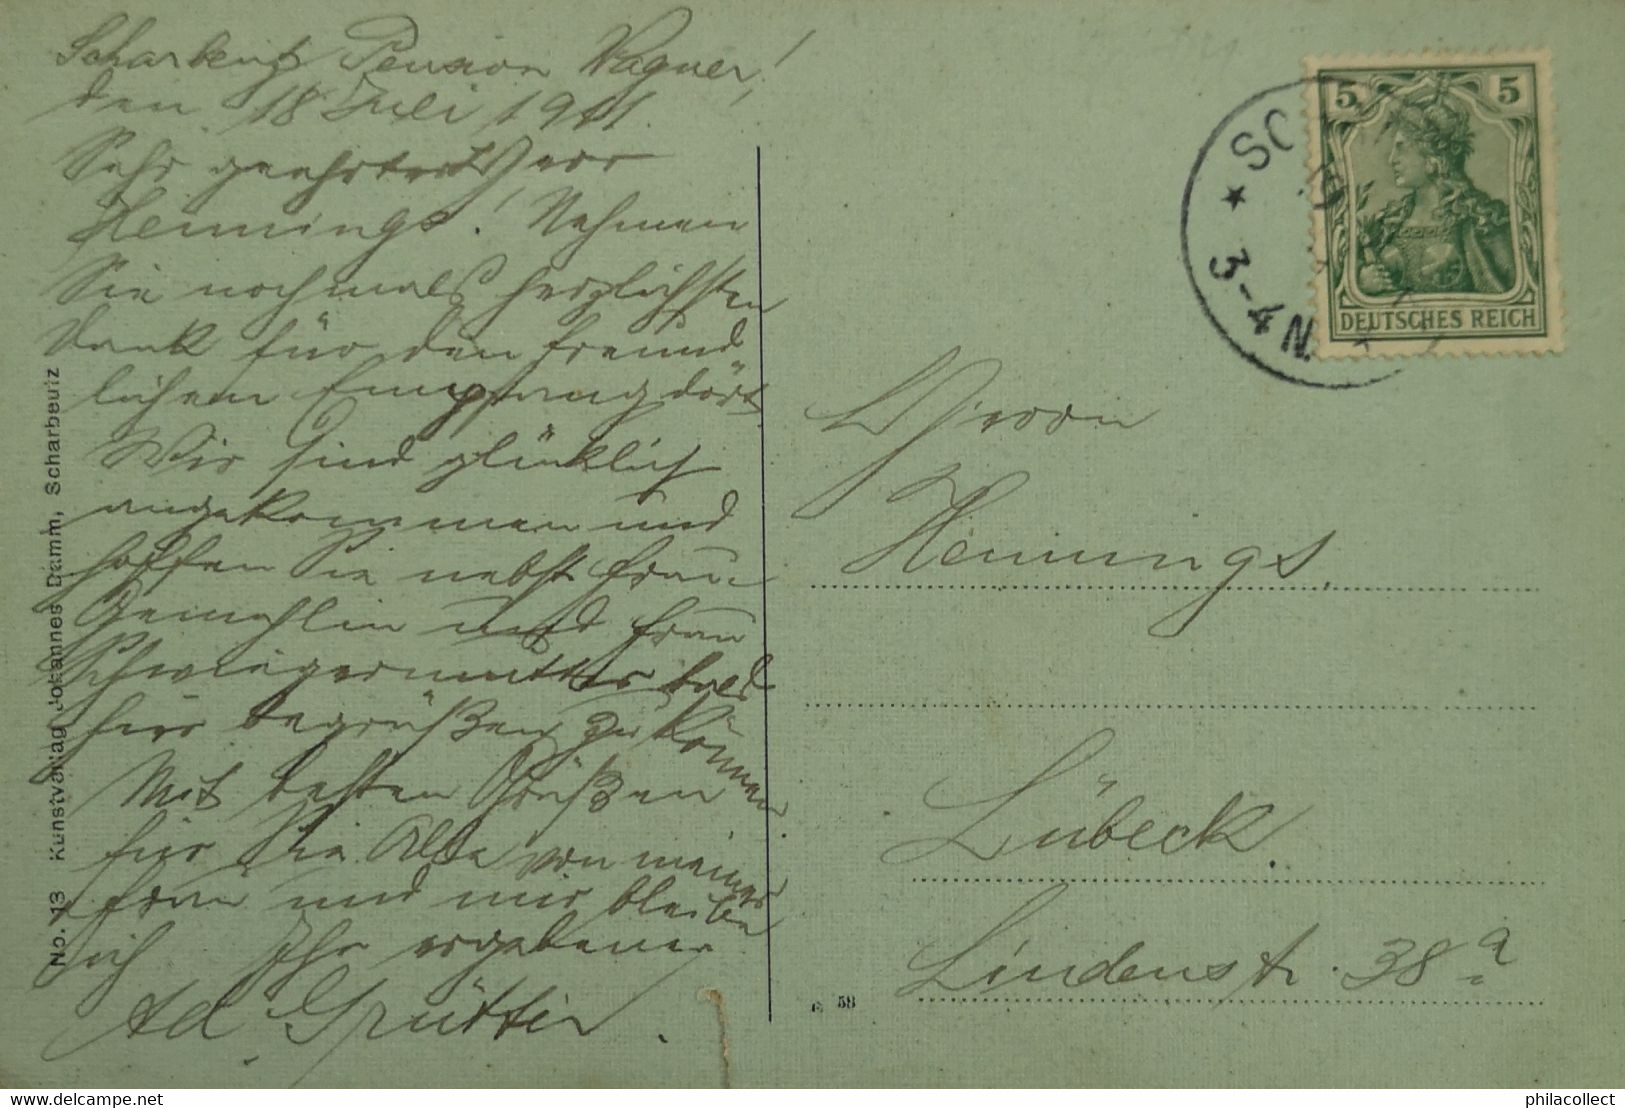 Scharbeutz Pension Wagner,!
den 18 Juli 1911.
Sehr geehrter Herr
Hennings! Nehmen
Sie nochmals herzlichsten
Dank für den freund
lichen Empfang dort
Wir sind glücklich
angekommen und
hoffen Sie nebst Frau
Gemahlin und Frau
Schwiegermutter bald
hier begrüßen zu können
Mit besten Grüßen
für Sie Alle von meiner
Frau und mir bleibe
ich Ihr ergebener
Ad. Grütter.
No. 13 Kunstverlag Johannes Damm, Scharbeutz
58
5 5
DEUTSCHES REICH
* SC
3-4 N.
Herrn
Hennings.
Lübeck.
Lindenstr. 38 a
delcampe.net philacollect